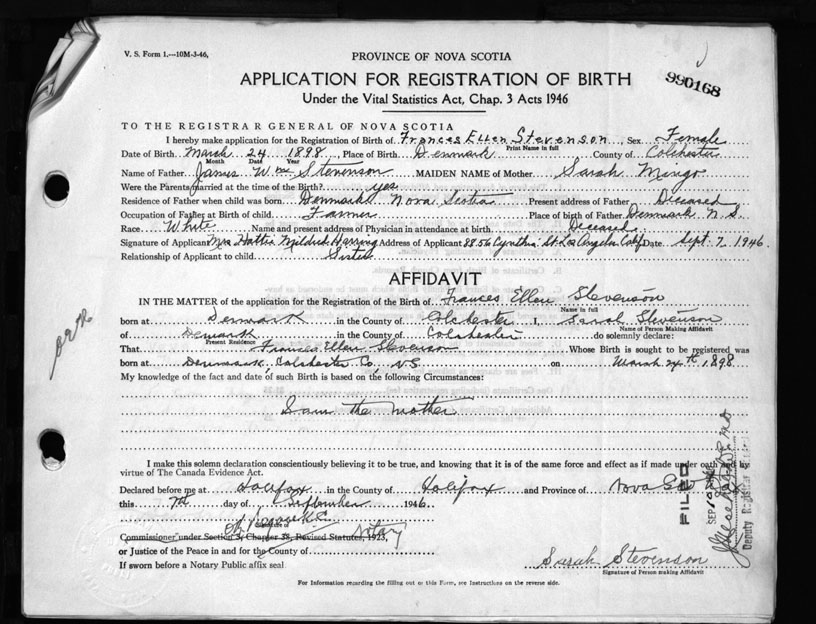 V. S. Form 1.—10M-3-46,
PROVINCE OF NOVA SCOTIA
APPLICATION FOR REGISTRATION OF BIRTH
990168
Under the Vital Statistics Act, Chap. 3 Acts 1946
TO THE REGISTRAR GENERAL OF NOVA SCOTIA
I hereby make application for the Registration of Birth of Frances Ellen Stevenson, Sex Female
Print Name in full
Date of Birth March 24 1898, Place of Birth Denmark County of Colchester
Month Date Year
Name of Father James Wm Stevenson MAIDEN NAME of Mother Sarah Mingo
Were the Parents married at the time of the Birth? yes
Residence of Father when child was born Denmark Nova Scotia Present address of Father Deceased
Occupation of Father at Birth of child Farmer Place of birth of Father Denmark N. S.
Race White Name and present address of Physician in attendance at birth Deceased
Signature of Applicant Mrs Hattie Mildred Address of Applicant 3856 Cynthia St Los Angeles Calif Date Sept. 7, 1946.
Relationship of Applicant to child Sister
AFFIDAVIT
IN THE MATTER of the application for the Registration of the Birth of Frances Ellen Stevenson
Name in full
born at Denmark in the County of Colchester I, Sarah Stevenson
Name of Person Making Affidavit
of Denmark in the County of Colchester do solemnly declare:
Present Residence
That Frances Ellen Stevenson Whose Birth is sought to be registered was
born at Denmark Colchester Co. N.S. on March 24th 1898
My knowledge of the fact and date of such Birth is based on the following Circumstances:
I am the mother
I make this solemn declaration conscientiously believing it to be true, and knowing that it is of the same force and effect as if made under oath and by
virtue of The Canada Evidence Act.
Declared before me at Halifax in the County of Halifax and Province of Nova Scotia
this 7th day of September 1946.
Signature of
Commissioner under Section 3, Chapter 38, Revised Statutes, 1923, Notary
or Justice of the Peace in and for the County of
If sworn before a Notary Public affix seal
Sarah Stevenson
Signature of Person making Affidavit
For Information regarding the filling out of this Form, see Instructions on the reverse side.
FILED
SEP
Deputy Registrar